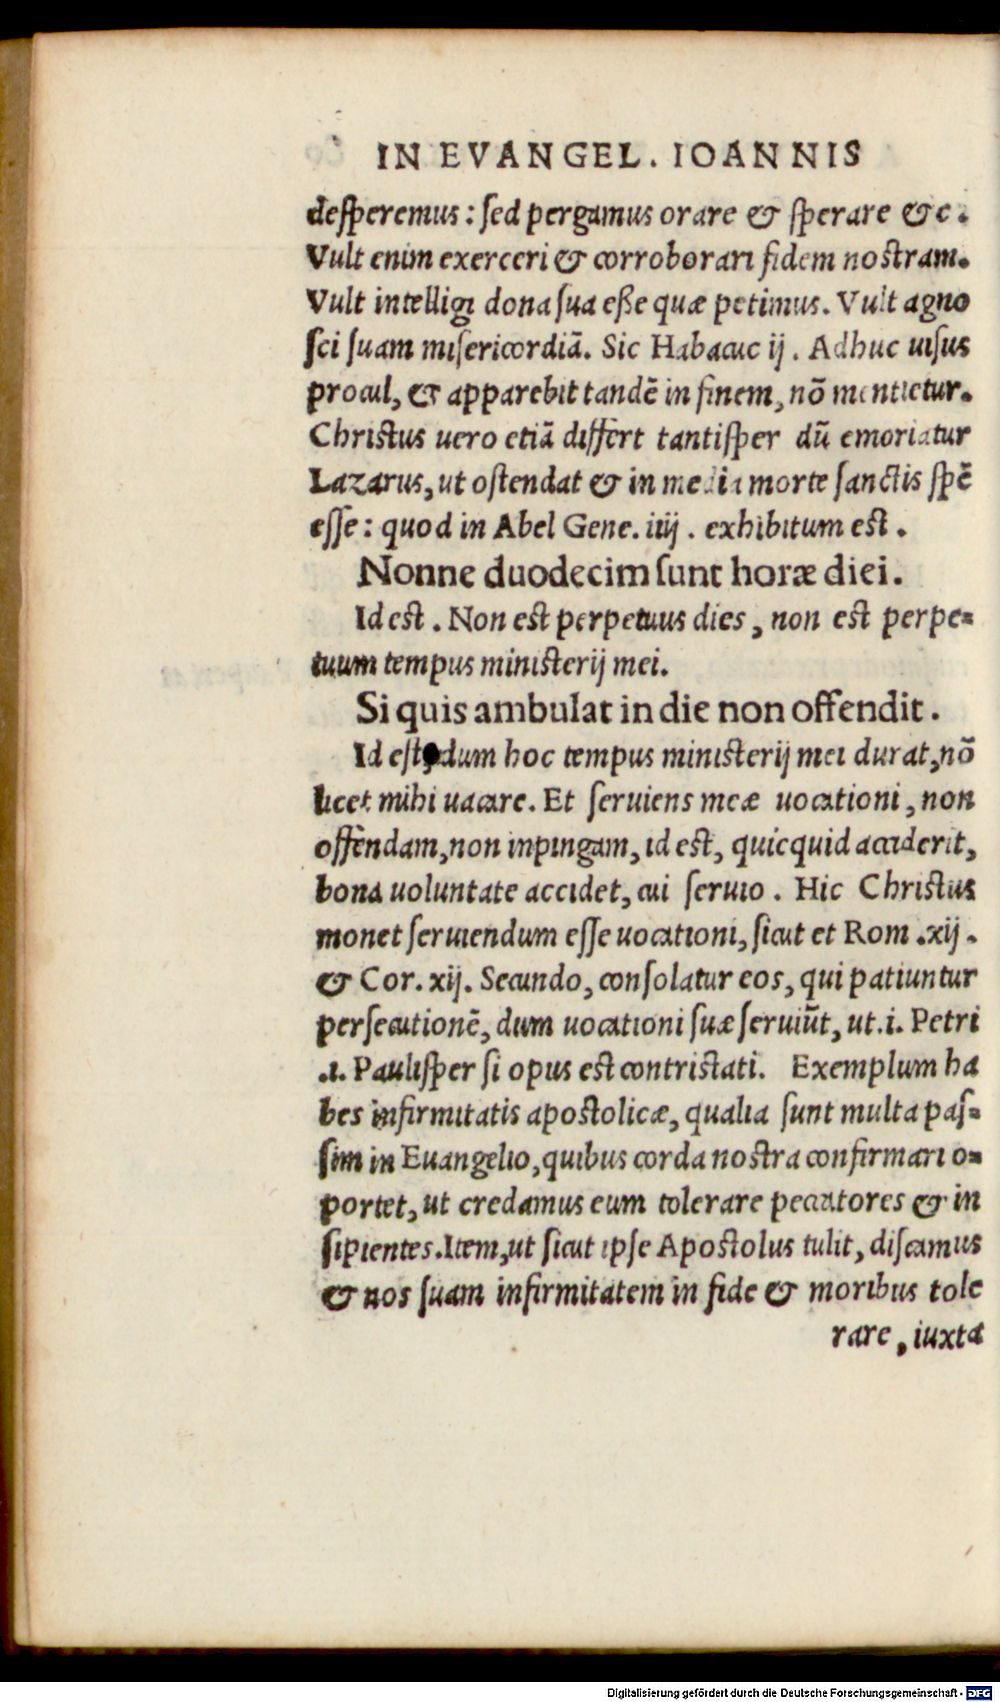 IN EVANGEL. IOANNIS
desperemus: sed pergamus orare & sperare &c.
Vult enim exerceri & corroborari fidem nostram.
Vult intelligi dona sua eße quæ petimus. Vult agno
sci suam misericordiã. Sic Habacuc ij. Adhuc uisus
procul, & apparebit tandẽ in finem, nõ mentietur.
Christus uero etiã differt tantisper dũ emoriatur
Lazarus, ut ostendat & in media morte sanctis spẽ
esse: quod in Abel Gene. iiij. exhibitum est.
Nonne duodecim sunt horæ diei.
Id est. Non est perpetuus dies, non est perpe=
tuum tempus ministerij mei.
Si quis ambulat in die non offendit.
Id est, dum hoc tempus ministerij mei durat, nõ
licet mihi uacare. Et seruiens meæ uocationi, non
offendam, non inpingam, id est, quicquid acciderit,
bona uoluntate accidet, cui seruio. Hic Christus
monet seruiendum esse uocationi, sicut et Rom .xij.
& Cor. xij. Secundo, consolatur eos, qui patiuntur
persecutionẽ, dum uocationi suæ seruiũt, ut .i. Petri
.i. Paulisper si opus est contristati. Exemplum ha
bes infirmitatis apostolicæ, qualia sunt multa pas=
sim in Euangelio, quibus corda nostra confirmari o=
portet, ut credamus eum tolerare peccatores & in
sipientes. Item, ut sicut ipse Apostolus tulit, discamus
& nos suam infirmitatem in fide & moribus tole
rare, iuxta
Digitalisierung gefördert durch die Deutsche Forschungsgemeinschaft - DFG